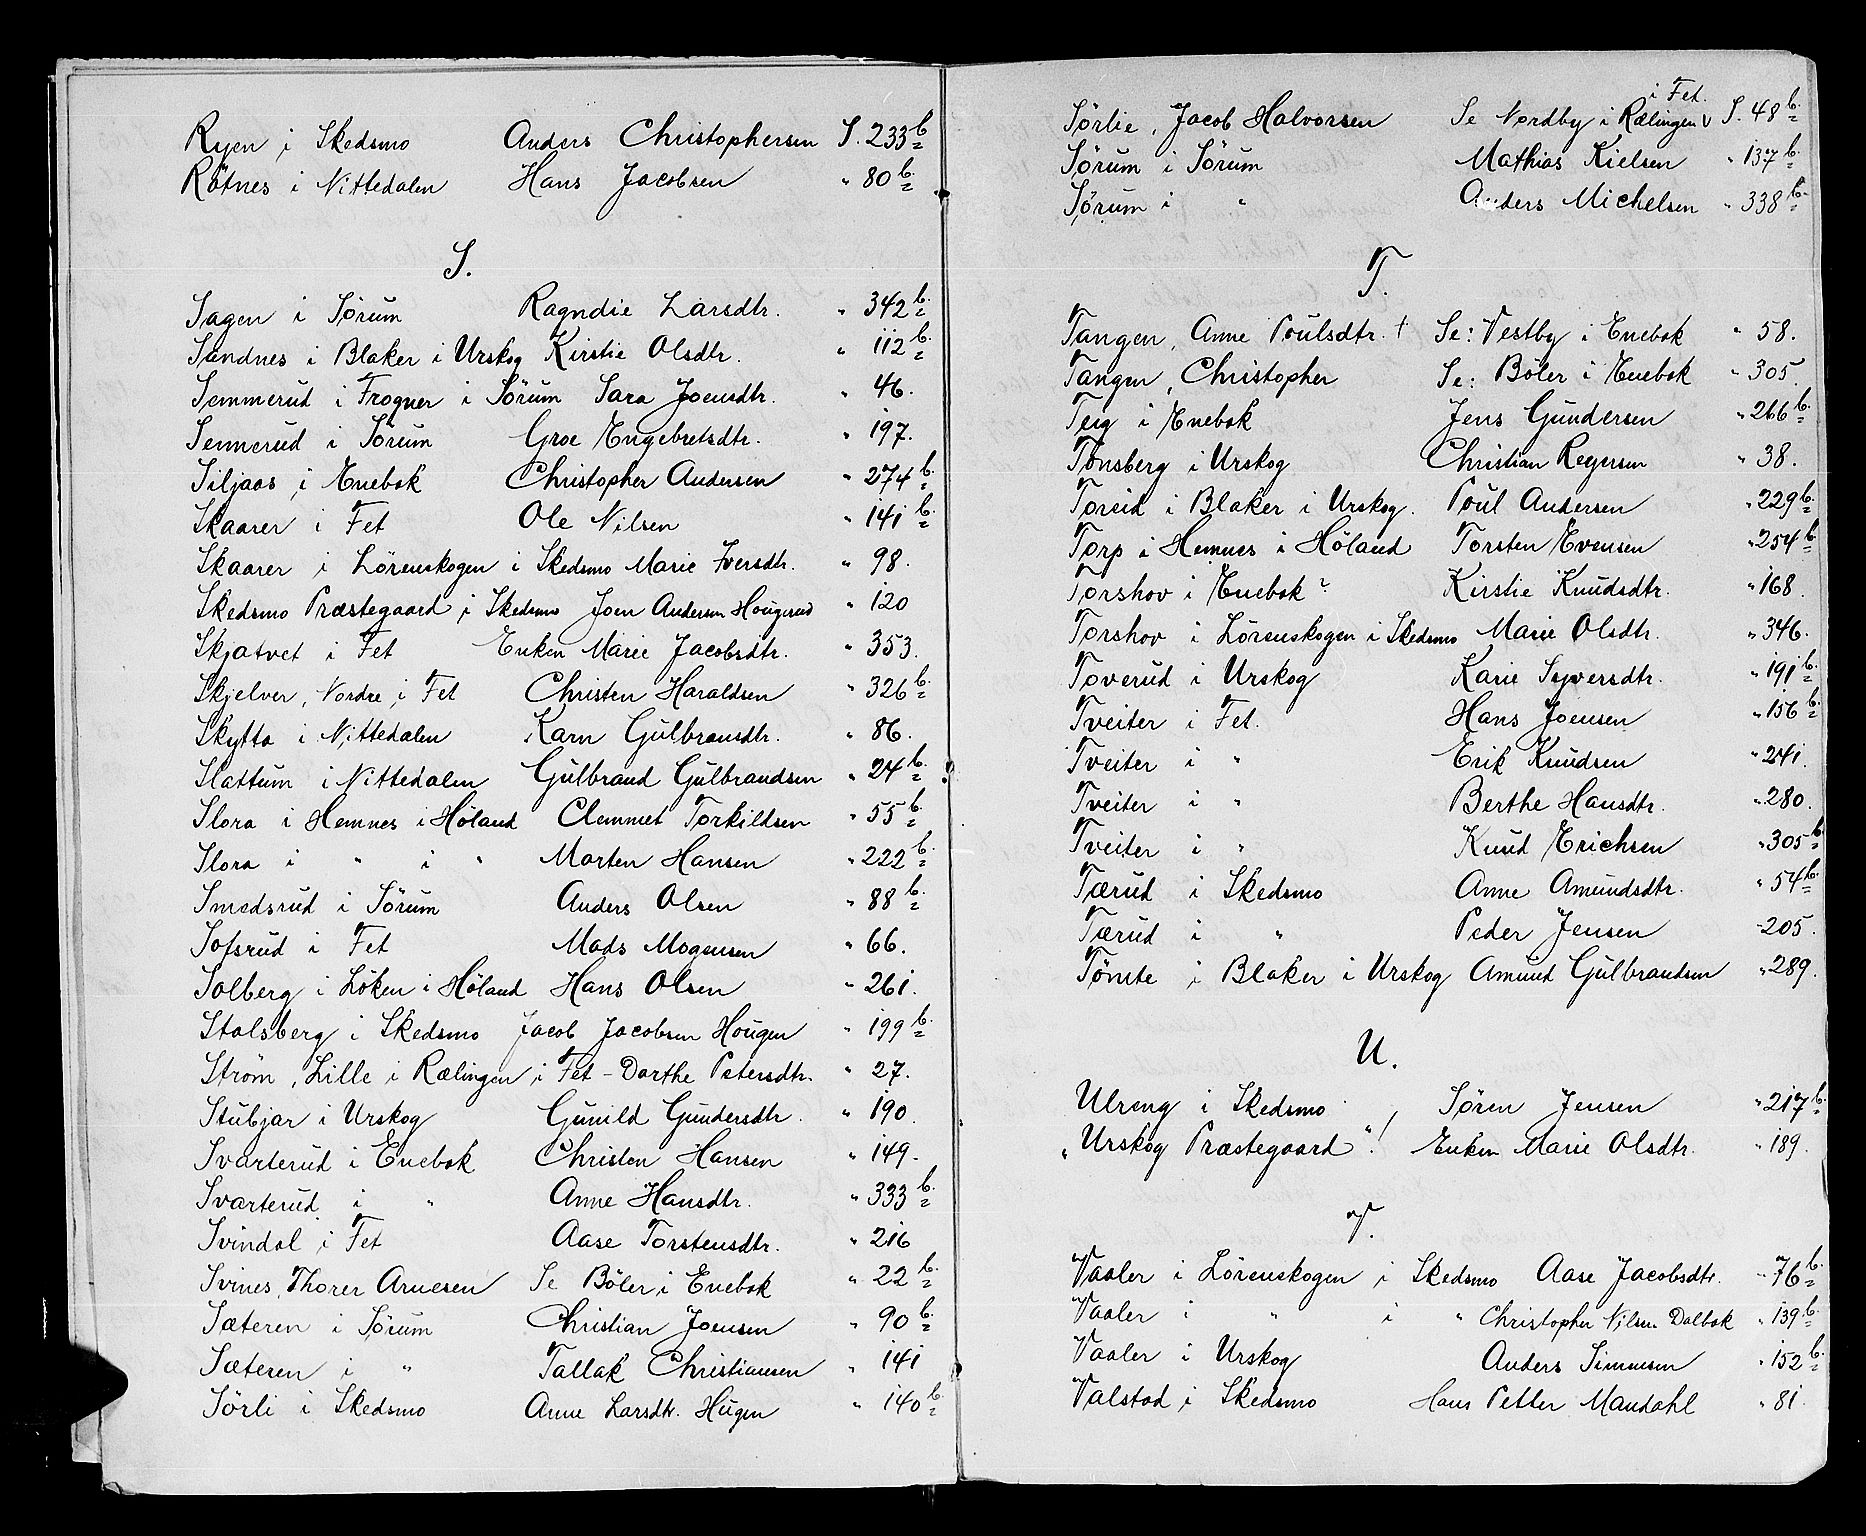 Ryen i Skedsmo Anders Christophersen S. 233 b.
Rötnes i Nittedalen Hans Jacobsen " 80 b.
S.
Sagen i Sørum Ragndie Larsdtr. " 342 b.
Sandnes i Blaker i Urskog Kirstie Olsdtr. " 112 b.
Semmerud i Frogner i Sørum Sara Joensdtr. " 46.
Sennerud i Sørum Groe Engebretsdtr. " 197.
Siljaas i Enebak Christopher Andersen " 274 b.
Skaarer i Fet Ole Nilsen " 141 b.
Skaarer i Lörenskogen i Skedsmo Marie Iversdtr. " 98.
Skedsmo Præstegaard i Skedsmo Joen Andersen Hougerud " 120
Skjatvet i Fet Enken Marie Jacobsdtr. " 353.
Skjelver, Nordre, i Fet Christen Haraldsen " 326 b.
Skytta i Nittedalen Karn Gulbransdtr. " 86.
Slattum i Nittedalen Gulbrand Gulbrandsen " 24 b.
Slora i Hemnes i Høland Clemmet Torkildsen " 55 b.
Slora i " i " Morten Hansen " 222 b.
Smedsrud i Sørum Anders Olsen " 88 b.
Sofsrud i Fet Mads Mogensen " 66.
Solberg i Löken i Höland Hans Olsen " 261.
Stalsberg i Skedsmo Jacob Jacobsen Hougen " 199 b.
Strøm, Lille i Rælingen i Fet - Dorthe Petersdtr. " 27.
Stubjar i Urskog Gunild Gundersdtr. " 190.
Svarterud i Enebak Christen Hansen " 149.
Svarterud i " Anne Hansdtr. " 333 b.
Svindal i Fet Aase Torstensdtr. " 216
Svines, Thorer Arnesen Se Böler i Enebak " 22 b.
Sæteren i Sørum Christian Joensen " 90 b.
Sæteren i " Tallak Christiansen " 141
Sörli i Skedsmo Anne Larsdtr. Hugen " 140 b.
Sörlie, Jacob Halvorsen Se Nordby i Rælingen i Fet. S. 48 b.
Sørum i Sørum Mathias Nielsen " 137 b.
Sørum i " Anders Michelsen " 338 b.
T.
Tangen, Anne Poulsdtr. † Se: Vestby i Enebak " 58.
Tangen, Christopher Se: Böler i Enebak " 305.
Teig i Enebak Jens Gundersen " 266 b.
Tonsberg i Urskog Christian Regersen " 38.
Toreid i Blaker i Urskog. Poul Andersen " 229 b.
Torp i Hemnes i Höland Torsten Evensen " 254 b
Torshov i Enebak? Kirstie Knudsdtr. " 168.
Torshov i Lörenskogen i Skedsmo Marie Olsdtr. " 346.
Toverud i Urskog Karie Syversdtr. " 191 b.
Tveiter i Fet. Hans Joensen " 156 b.
Tveiter i " Erik Knudsen " 241.
Tveiter i " Berthe Hansdtr. " 280.
Tveiter i " Knud Erichsen " 305 b.
Tærud i Skedsmo Anne Amundsdtr. " 54 b.
Tærud i " Peder Jensen " 205.
Tömte i Blaker i Urskog Amund Gulbrandsen " 289.
U.
Ulreng i Skedsmo Søren Jensen " 217 b.
"Urskog Præstegaard"! Enken Marie Olsdtr. " 189.
V.
Vaaler i Lörenskogen i Skedsmo Aase Jacobsdtr. " 76 b.
Vaaler i " i " Christopher Nilsen Dalbak " 139 b.
Vaaler i Urskog Anders Simensen " 152 b.
Valstad i Skedsmo Hans Petter Mandahl " 81.